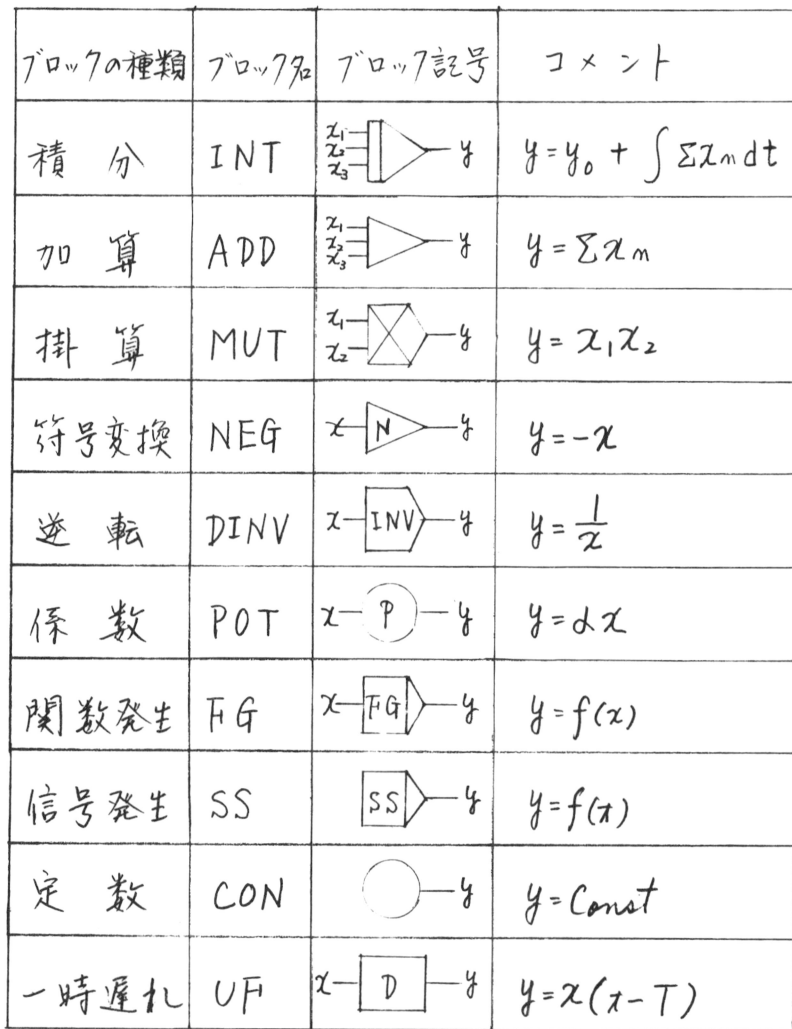 ブロックの種類 ブロック名 ブロック記号 コメント
積分 INT x₁ x₂ x₃ y y=y₀ + ∫ Σxn dt
加算 ADD x₁ x₂ x₃ y y=Σxn
掛算 MUT x₁ x₂ y y=x₁x₂
符号変換 NEG x N y y=-x
逆転 DINV x INV y y=1/x
係数 POT x P y y=αx
関数発生 FG x FG y y=f(x)
信号発生 SS SS y y=f(t)
定数 CON y y=Const
一時遅れ UF x D y y=x(t-T)